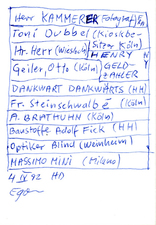 Herr KAMMERER Fotograf
Toni Dubbel (Kioskbe-
sitzer Köln)
Mr. Herr (Wiesbch) HENRY
Geiler, Otto (Köln) GELD-
ZAHLER
DANKWART DANKWÄRTS (HH)
Fr. Steinschwalbe (Köln)
A. BRATHUHN (KÖLN)
Baustoffe Adolf Fick (HH)
Optiker Blind (Weinheim)
MASSIMO MINI (Milano)
4 IV 92 HD